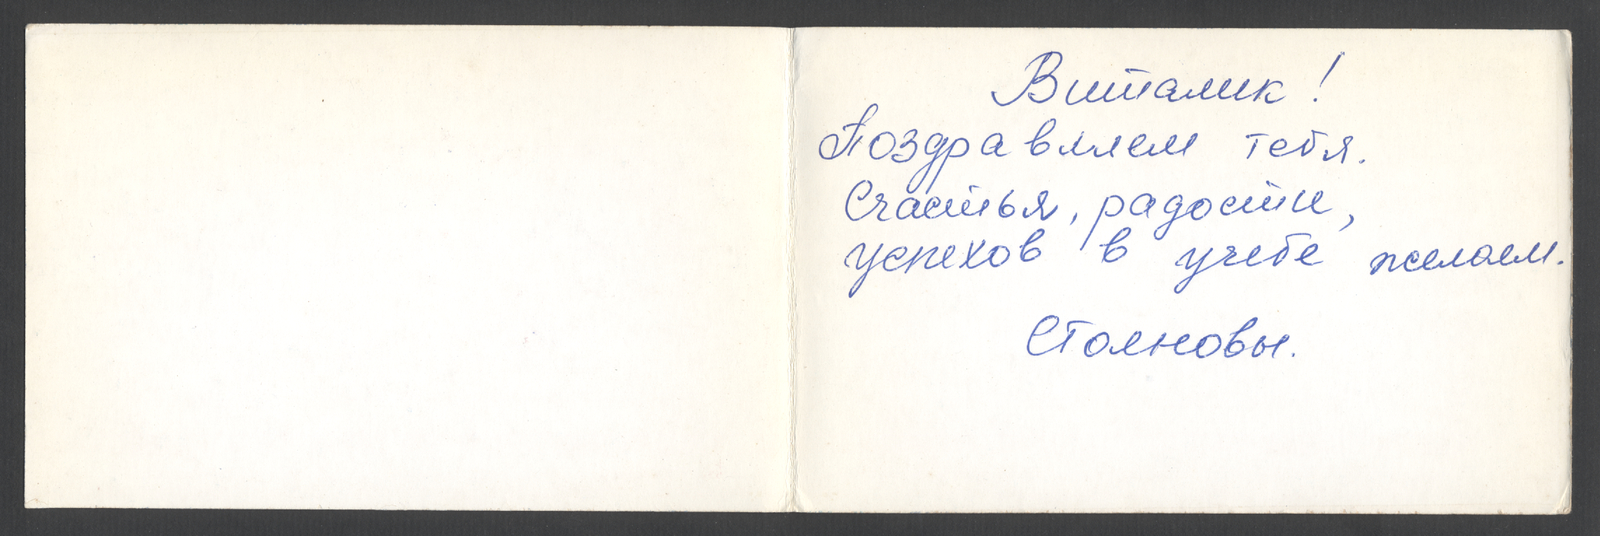 Виталик!
Поздравляем тебя.
Счастья, радости,
успехов в учебе желаем.
Стояновы.